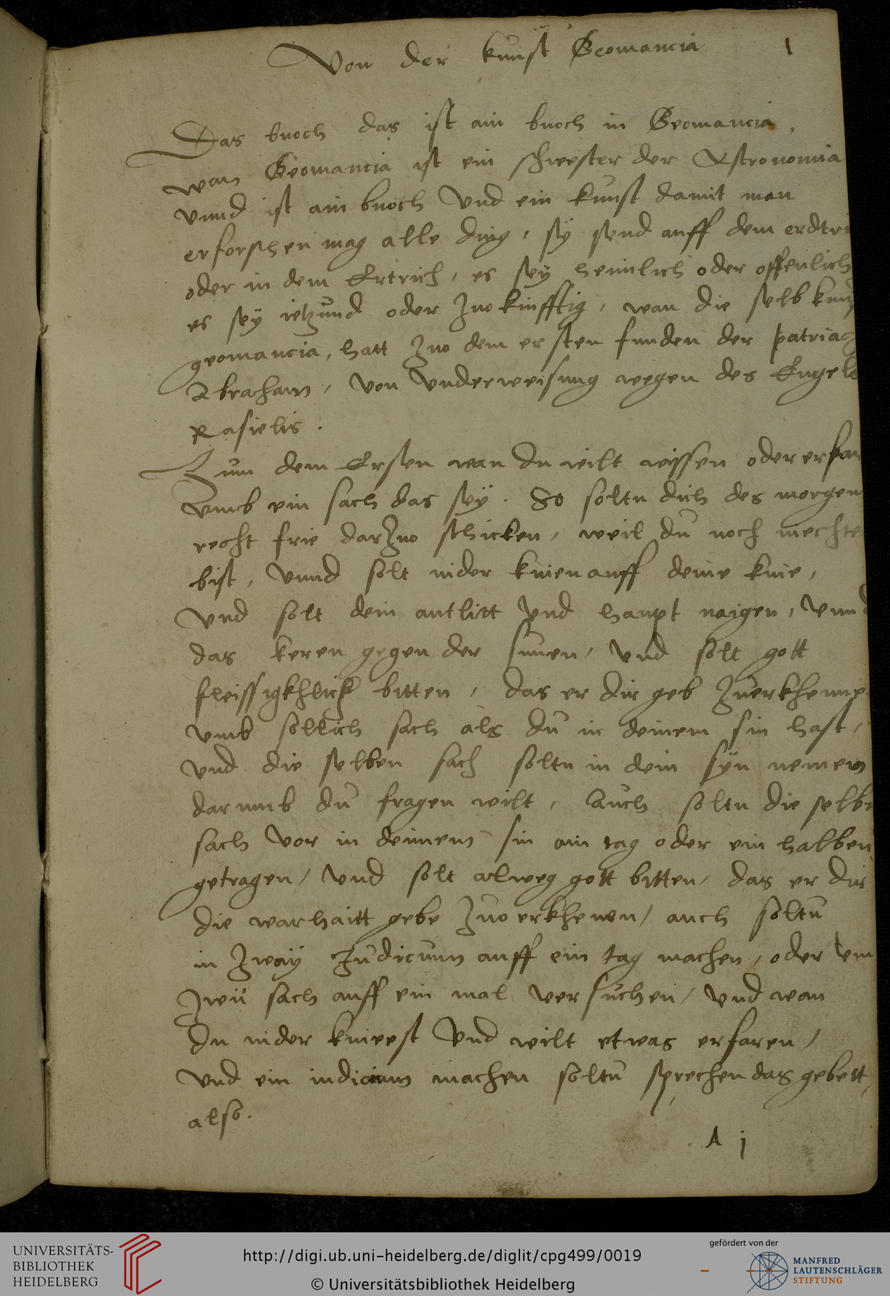 Von der kunst Geomancia
1
Das buoch das ist ain buoch in Geomancia,
wan Geomancia ist ein schwester der Astronomia
vnnd ist ain buoch Vnd ein kunst damit man
erforschen mag alle ding, sy send auff dem erdtri
oder in dem Ertrich, es sey heimlich oder offenlich
es sey ietzund oder Zuokinfftig, wan die selb kun
geomancia, hatt Zuo dem ersten funden der patriac
Abraham, von vnderweisung wegen des Engels
Rasielis.
Zum dem Ersten wan du wilt wissen oder erfar
vmb ein sach das sey. So soltu dich des morgen
recht frie darZuo schicken, weil du noch niechte
bist, vnnd solt nider knien auff deine knie,
Vnd solt dein antlitt vnd haupt naigen, Vnnd
das keren gegen der sunen, vnd solt gott
fleissigkhlich bitten, das er dir geb Zuerkhenn
vmb sollich sach als du in deinem sin hast,
vnd die selben sach soltu in dein syn nemen
darumb du fragen wilt, Auch soltu die selbe
sach vor in deinem sin ain tag oder ein halben
getragen, vnd solt alweg gott bitten, das er dir
die warhaitt gebe Zuo erkhenen, auch soltu
in Zway Judicium auff ein tag machen, oder vm
Zwü sach auff ein mal versuchen, vnd wan
du nider knieest Vnd wilt etwas erfaren,
vnd ein iudicium machen soltu sprechen das gebett,
also.
A j
UNIVERSITÄTS-
BIBLIOTHEK
HEIDELBERG
http://digi.ub.uni-heidelberg.de/diglit/cpg499/0019
© Universitätsbibliothek Heidelberg
gefördert von der
MANFRED
LAUTENSCHLÄGER
STIFTUNG